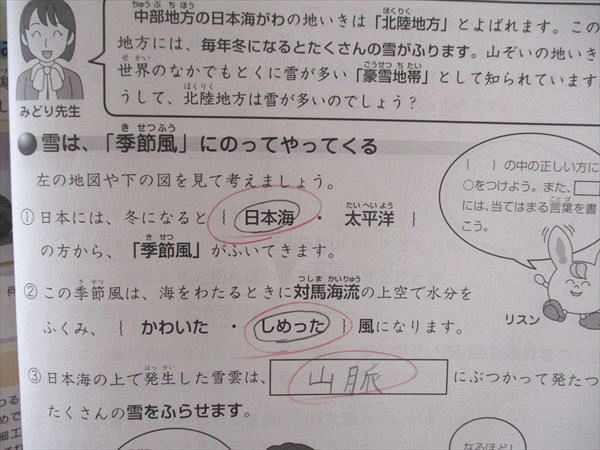 中部地方の日本海がわの地いきは「北陸地方」とよばれます。この
地方には、毎年冬になるとたくさんの雪がふります。山ぞいの地いき
世界のなかでもとくに雪が多い「豪雪地帯」として知られています
うして、北陸地方は雪が多いのでしょう?
みどり先生
●雪は、「季節風」にのってやってくる
左の地図や下の図を見て考えましょう。
①日本には、冬になると{ 日本海 ・ 太平洋 }
の方から、「季節風」がふいてきます。
②この季節風は、海をわたるときに対馬海流の上空で水分を
ふくみ、{ かわいた ・ しめった }風になります。
③日本海の上で発生した雪雲は、 山脈 にぶつかって発たつ
たくさんの雪をふらせます。
{ }の中の正しい方に
○をつけよう。また、□
には、当てはまる言葉を書
こう。
リスン
なるほど!